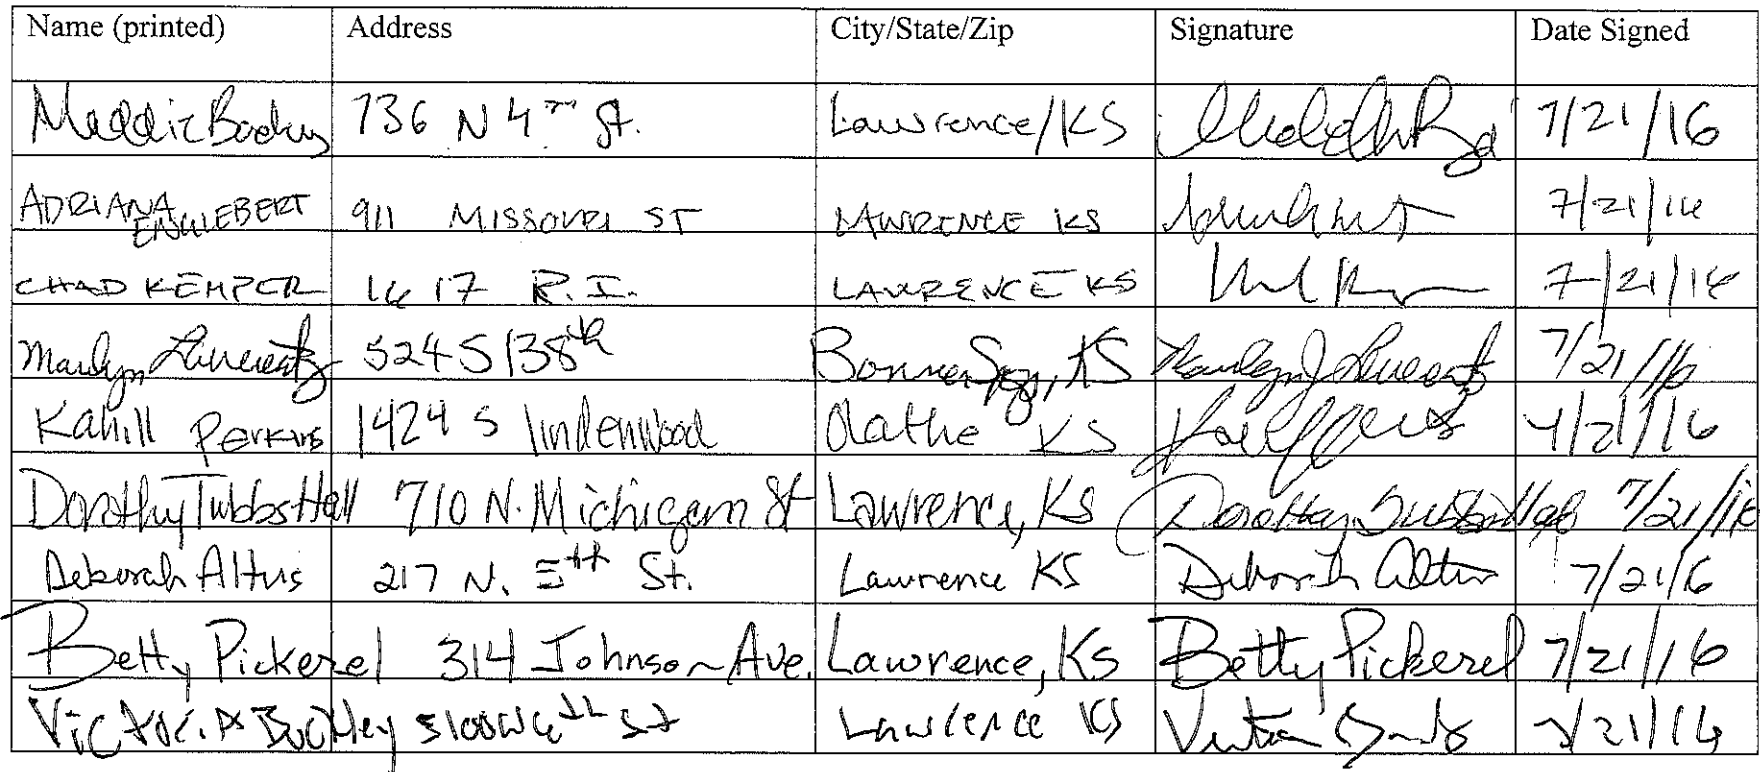 Name (printed) Address City/State/Zip Signature Date Signed
Maddie 736 N 4th St. Lawrence/KS 7/21/16
ADRIANA ENGLEBERT 911 MISSOURI ST LAWRENCE KS 7/21/16
CHAD KEMPER 1617 R.I. LAWRENCE KS 7/21/16
Marilyn 524 S 138th Bonner Spgs, KS Marilyn J 7/21/16
Kahill Perkins 1424 S lindenwood Olathe KS 7/21/16
Dorothy Tubbs Hall 710 N. Michigan St Lawrence, KS Dorothy Tubbs Hall 7/21/16
Deborah Altus 217 N. 5th St. Lawrence KS Deborah Altus 7/21/6
Betty Pickerel 314 Johnson Ave. Lawrence, KS Betty Pickerel 7/21/16
Victoria 5100 W 6th St Lawrence KS 7/21/16